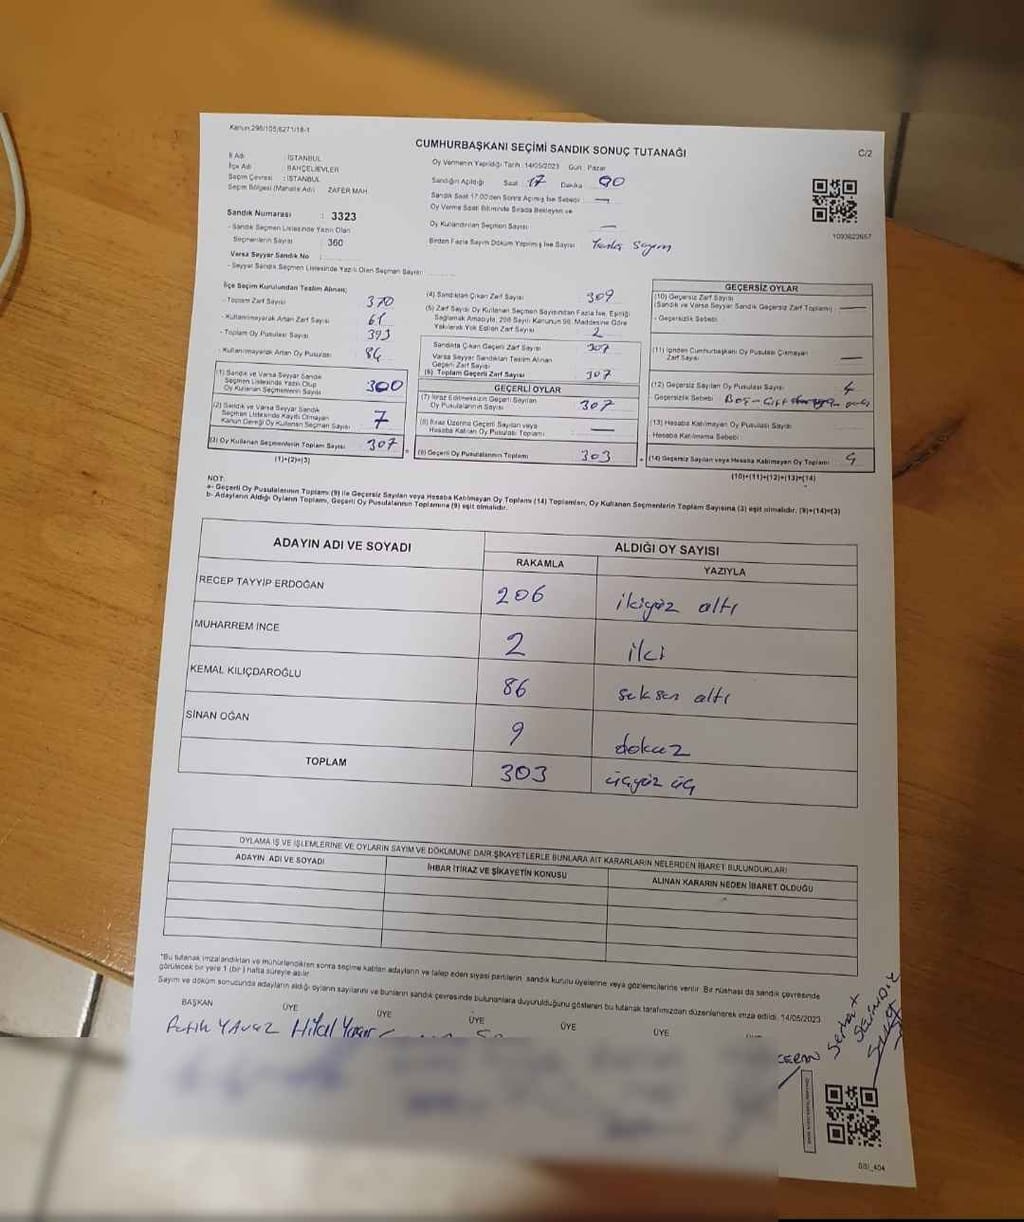 Kanun:298/105,6271/18-1
CUMHURBAŞKANI SEÇİMİ SANDIK SONUÇ TUTANAĞI
C/2
İl Adı : İSTANBUL
İlçe Adı : BAHÇELİEVLER
Seçim Çevresi : İSTANBUL
Seçim Bölgesi (Mahalle Adı) ZAFER MAH.
Sandık Numarası : 3323
- Sandık Seçmen Listesinde Yazılı Olan
Seçmenlerin Sayısı 360
Varsa Seyyar Sandık No
- Seyyar Sandık Seçmen Listesinde Yazılı Olan Seçmen Sayısı
Oy Vermenin Yapıldığı Tarih :14/05/2023 Gün : Pazar
Sandığın Açıldığı Saat 17 Dakika 00
Sandık Saat 17.00'den Sonra Açılmış İse Sebebi —
Oy Verme Saati Bitiminde Sırada Bekleyen ve
Oy Kullandırılan Seçmen Sayısı —
Birden Fazla Sayım Döküm Yapılmış İse Sayısı Yanlış Sayım
1093623657
İlçe Seçim Kurulundan Teslim Alınan;
- Toplam Zarf Sayısı 370
- Kullanılmayarak Artan Zarf Sayısı 61
- Toplam Oy Pusulası Sayısı 393
- Kullanılmayarak Artan Oy Pusulası 84
(1) Sandık ve Varsa Seyyar Sandık
Seçmen Listesinde Yazılı Olup
Oy Kullanan Seçmenlerin Sayısı 300
(2) Sandık ve Varsa Seyyar Sandık
Seçmen Listesinde Kayıtlı Olmayan
Kanun Gereği Oy Kullanan Seçmen Sayısı 7
(3) Oy Kullanan Seçmenlerin Toplam Sayısı 307
(1)+(2)=(3)
(4) Sandıktan Çıkan Zarf Sayısı 309
(5) Zarf Sayısı Oy Kullanan Seçmen Sayısından Fazla İse, Eşitliği
Sağlamak Amacıyla, 298 Sayılı Kanunun 98. Maddesine Göre
Yakılarak Yok Edilen Zarf Sayısı 2
Sandıkta Çıkan Geçerli Zarf Sayısı 307
Varsa Seyyar Sandıktan Teslim Alınan
Geçerli Zarf Sayısı
(6) Toplam Geçerli Zarf Sayısı 307
GEÇERLİ OYLAR
(7) İtiraz Edilmeksizin Geçerli Sayılan
Oy Pusulalarının Sayısı 307
(8) İtiraz Üzerine Geçerli Sayılan veya
Hesaba Katılan Oy Pusulası Toplamı —
(9) Geçerli Oy Pusulalarının Toplamı 303
GEÇERSİZ OYLAR
(10) Geçersiz Zarf Sayısı
(Sandık ve Varsa Seyyar Sandık Geçersiz Zarf Toplamı) —
- Geçersizlik Sebebi
(11) İçinden Cumhurbaşkanı Oy Pusulası Çıkmayan
Zarf Sayısı —
(12) Geçersiz Sayılan Oy Pusulası Sayısı 4
Geçersizlik Sebebi Boş - Çift
(13) Hesaba Katılmayan Oy Pusulası Sayısı
Hesaba Katılmama Sebebi
(14) Geçersiz Sayılan veya Hesaba Katılmayan Oy Toplamı 4
(10)+(11)+(12)+(13)=(14)
NOT:
a- Geçerli Oy Pusulalarının Toplamı (9) ile Geçersiz Sayılan veya Hesaba Katılmayan Oy Toplamı (14) Toplamları, Oy Kullanan Seçmenlerin Toplam Sayısına (3) eşit olmalıdır. (9)+(14)=(3)
b- Adayların Aldığı Oyların Toplamı, Geçerli Oy Pusulalarının Toplamına (9) eşit olmalıdır.
ADAYIN ADI VE SOYADI ALDIĞI OY SAYISI
RAKAMLA YAZIYLA
RECEP TAYYİP ERDOĞAN 206 ikiyüz altı
MUHARREM İNCE 2 iki
KEMAL KILIÇDAROĞLU 86 seksen altı
SİNAN OĞAN 9 dokuz
TOPLAM 303 üçyüz üç
OYLAMA İŞ VE İŞLEMLERİNE VE OYLARIN SAYIM VE DÖKÜMÜNE DAİR ŞİKAYETLERLE BUNLARA AİT KARARLARIN NELERDEN İBARET BULUNDUKLARI
ADAYIN ADI VE SOYADI İHBAR İTİRAZ VE ŞİKAYETİN KONUSU ALINAN KARARIN NEDEN İBARET OLDUĞU
"Bu tutanak imzalandıktan ve mühürlendikten sonra seçime katılan adayların ve talep eden siyasi partilerin sandık kurulu üyelerine veya gözlemcilerine verilir. Bir nüshası da sandık çevresinde
görülecek bir yere 1 (bir) hafta süreyle asılır.
Sayım ve döküm sonucunda adayların aldığı oyların sayılarını ve bunların sandık çevresinde bulunanlara duyurulduğunu gösteren bu tutanak tarafımızdan düzenlenerek imza edildi. 14/05/2023
BAŞKAN ÜYE ÜYE ÜYE ÜYE ÜYE
Fatih YAVUZ Hilal Yaşar
CERAN
Serhat
SBI_404